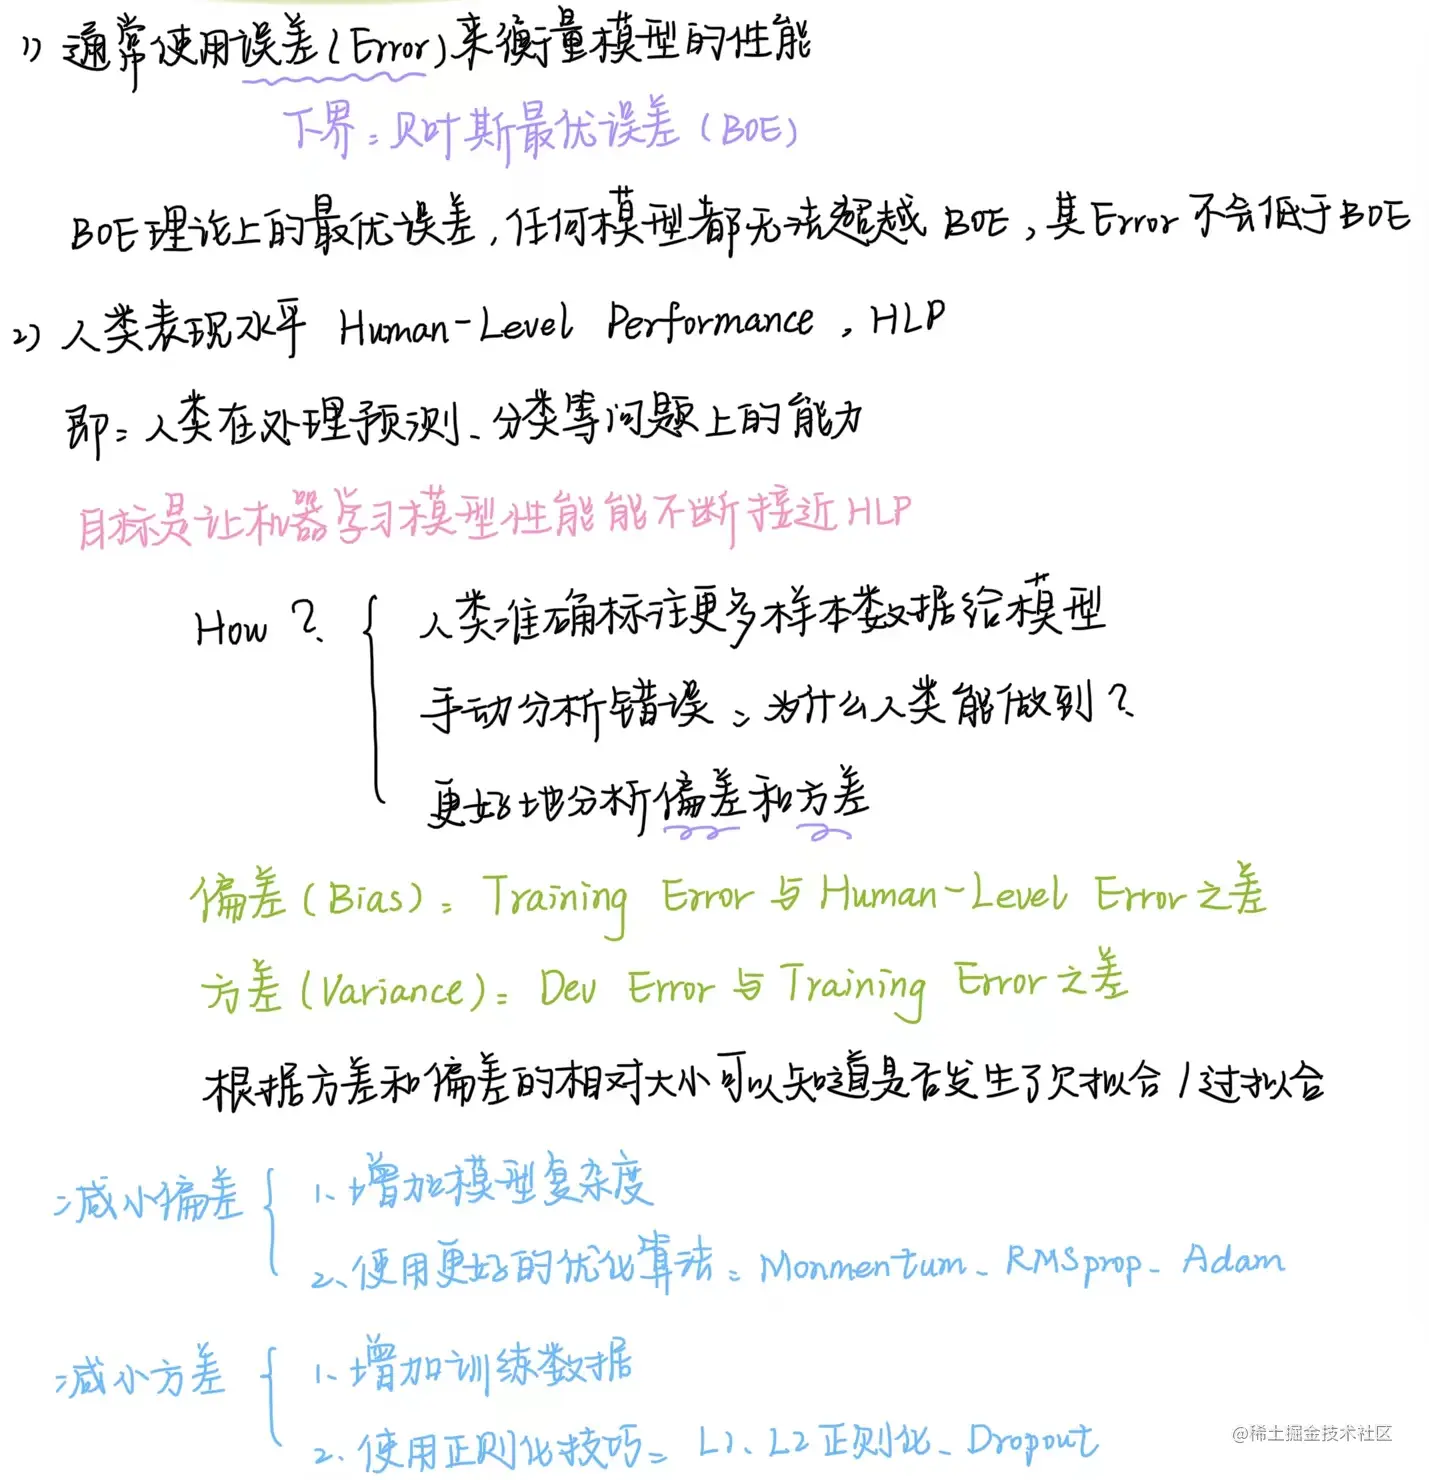 1) 通常使用误差(Error)来衡量模型的性能
下界：贝叶斯最优误差 (BOE)
BOE理论上的最优误差，任何模型都无法超越 BOE，其Error不会低于BOE
2) 人类表现水平 Human-Level Performance，HLP
即：人类在处理预测、分类等问题上的能力
目标是让机器学习模型性能能不断接近HLP
How？ { 人类准确标注更多样本数据给模型
手动分析错误：为什么人类能做到？
更好地分析偏差和方差
偏差(Bias)：Training Error 与 Human-Level Error之差
方差(Variance)：Dev Error 与 Training Error 之差
根据方差和偏差的相对大小可以知道是否发生了欠拟合/过拟合
减小偏差 { 1、增加模型复杂度
2、使用更好的优化算法：Monmentum、RMSprop、Adam
减小方差 { 1、增加训练数据
2、使用正则化技巧：L1、L2正则化、Dropout
@稀土掘金技术社区